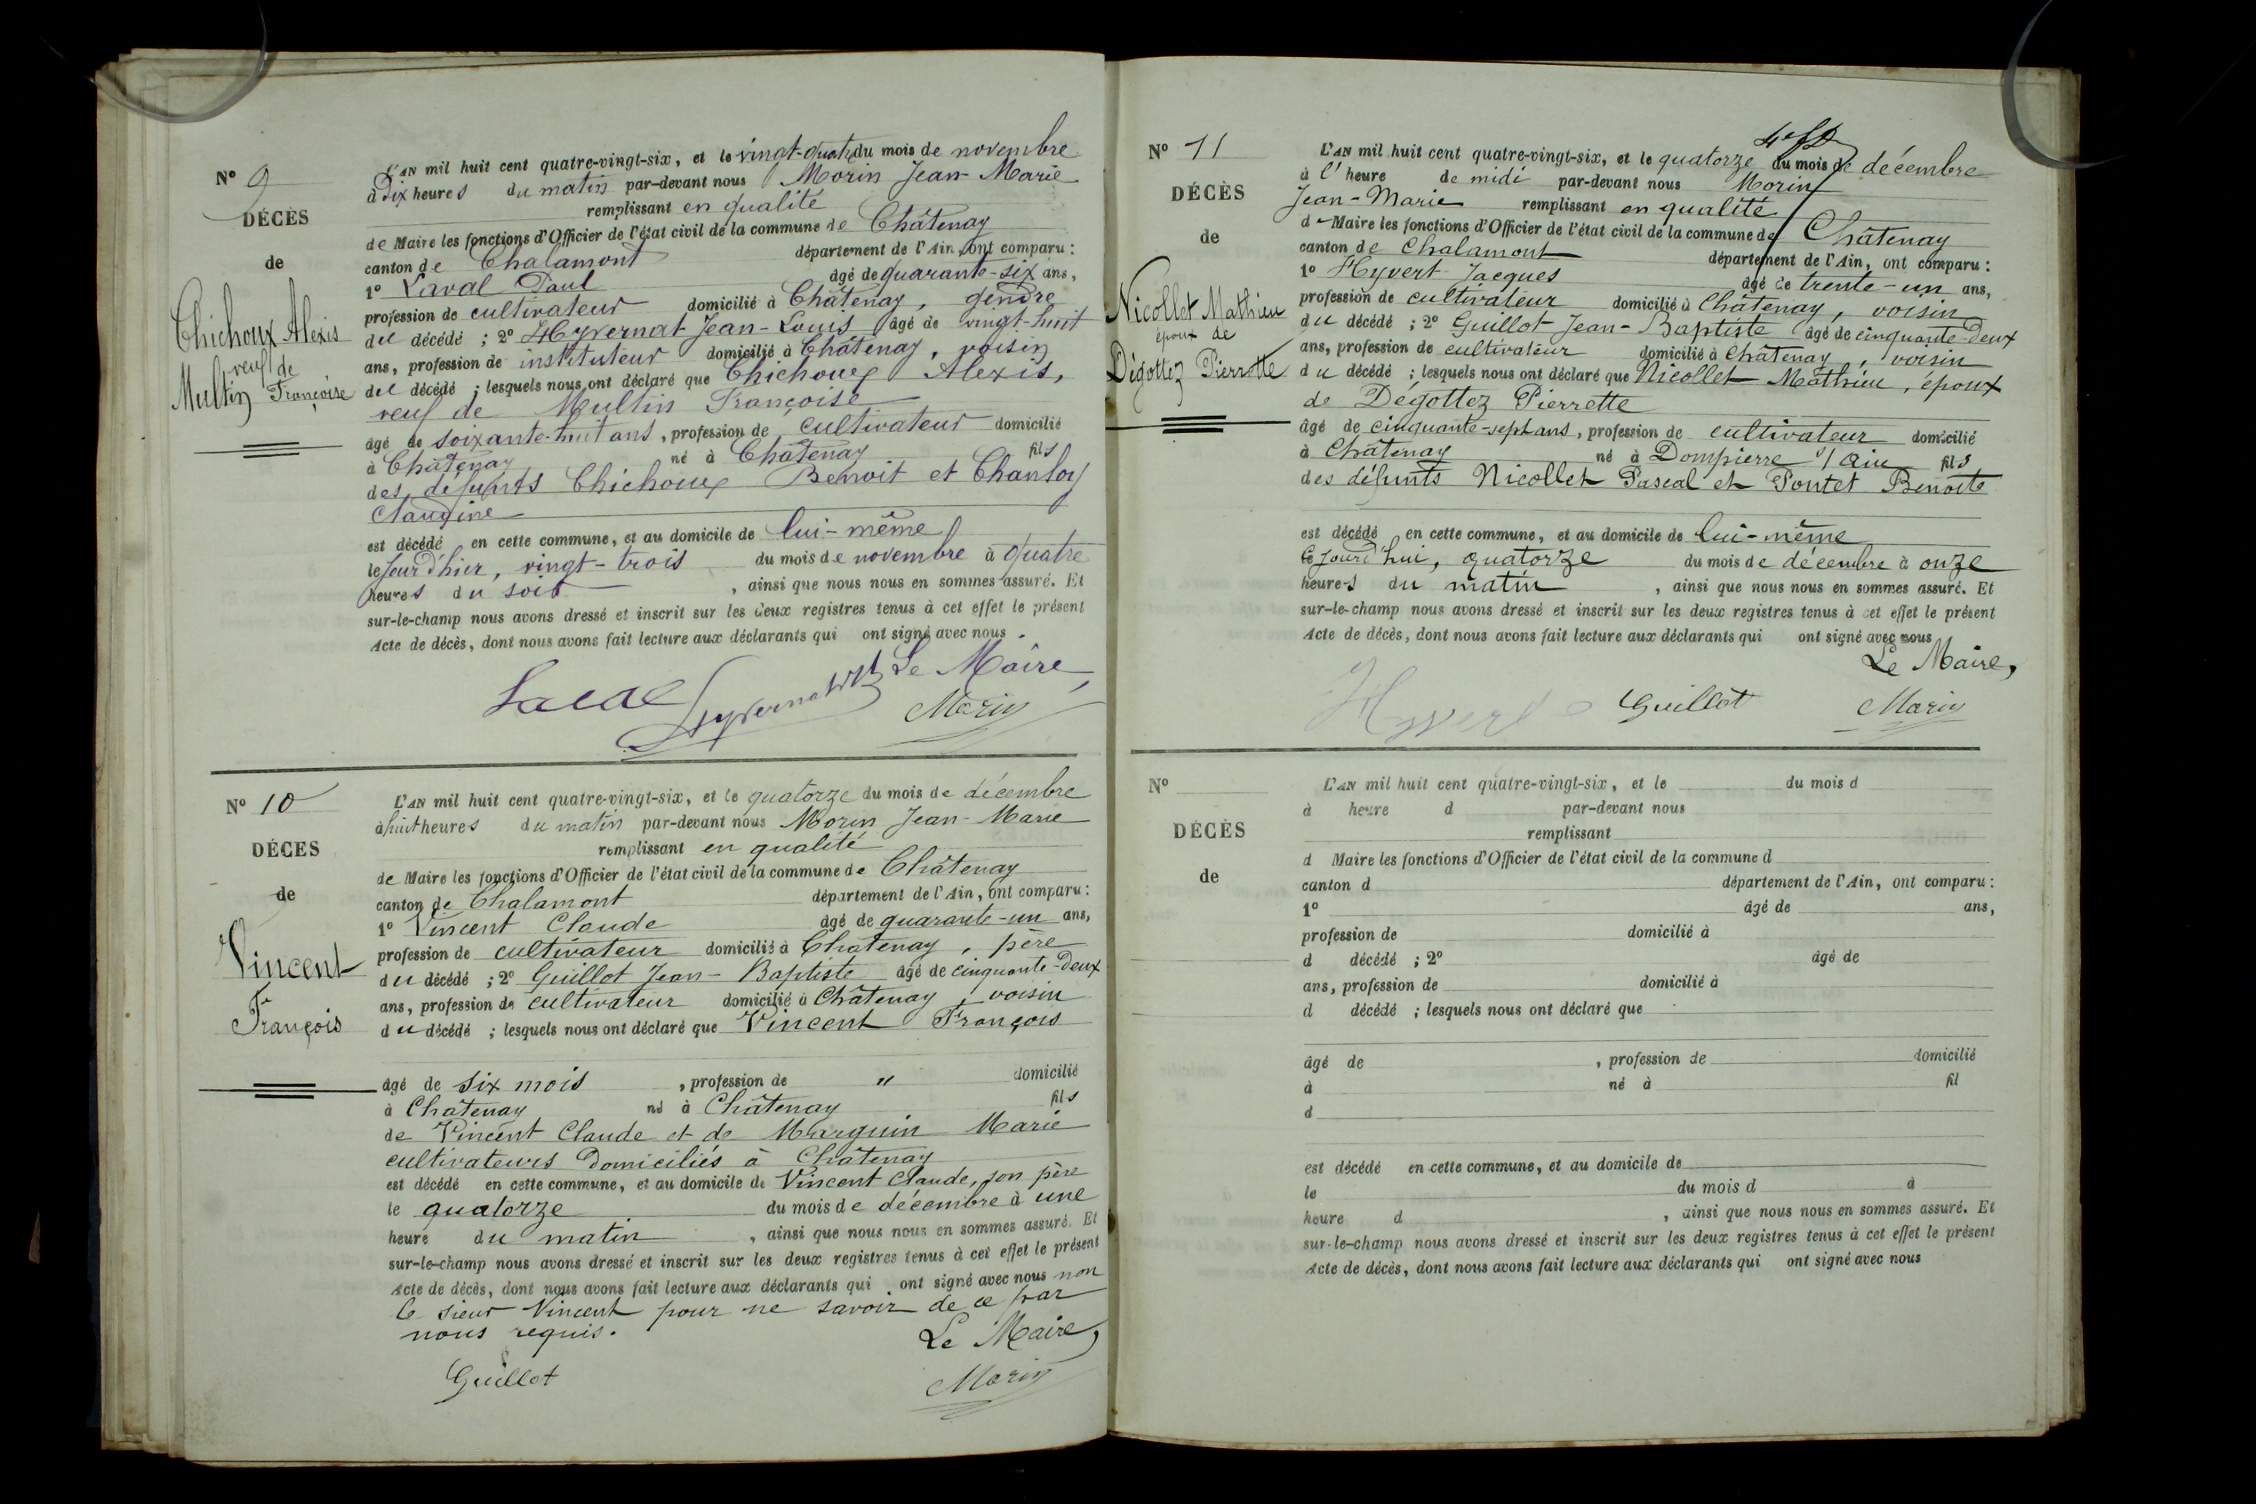 N° 9
DÉCÈS
de
Chichoux Alexis
veuf de
Multin Françoise
L'AN mil huit cent quatre-vingt-six, et le vingt-quatre du mois de novembre
à Dix heures du matin par-devant nous Morin Jean-Marie
remplissant en qualité
de Maire les fonctions d'Officier de l'état civil de la commune de Châtenay
canton de Chalamont département de l'Ain, ont comparu :
1° Laval Paul âgé de quarante-six ans,
profession de cultivateur domicilié à Châtenay, gendre
du décédé ; 2° Hyvernat Jean-Louis âgé de vingt-huit
ans, profession de instituteur domicilié à Châtenay, voisin
du décédé ; lesquels nous ont déclaré que Chichoux Alexis,
veuf de Multin Françoise
âgé de soixante-huit ans, profession de cultivateur domicilié
à Châtenay né à Châtenay fils
des défunts Chichoux Benoit et Chanloy
Claudine
est décédé en cette commune, et au domicile de lui-même
le jour d'hier, vingt-trois du mois de novembre à quatre
heures du soir, ainsi que nous nous en sommes assuré. Et
sur-le-champ nous avons dressé et inscrit sur les deux registres tenus à cet effet le présent
Acte de décès, dont nous avons fait lecture aux déclarants qui ont signé avec nous.
Le Maire,
Laval Hyvernat Morin
N° 10
DÉCES
de
Vincent
François
L'AN mil huit cent quatre-vingt-six, et le quatorze du mois de décembre
à huit heures du matin par-devant nous Morin Jean-Marie
remplissant en qualité
de Maire les fonctions d'Officier de l'état civil de la commune de Châtenay
canton de Chalamont département de l'Ain, ont comparu :
1° Vincent Claude âgé de quarante-un ans,
profession de cultivateur domicilié à Châtenay, père
du décédé ; 2° Guillot Jean-Baptiste âgé de cinquante-Deux
ans, profession de cultivateur domicilié à Châtenay, voisin
du décédé ; lesquels nous ont déclaré que Vincent François
âgé de six mois, profession de " domicilié
à Châtenay né à Châtenay fils
de Vincent Claude et de Marguin Marie
cultivateurs Domiciliés à Châtenay
est décédé en cette commune, et au domicile de Vincent Claude, son père
le quatorze du mois de décembre à une
heure du matin, ainsi que nous nous en sommes assuré. Et
sur-le-champ nous avons dressé et inscrit sur les deux registres tenus à cet effet le présent
Acte de décès, dont nous avons fait lecture aux déclarants qui ont signé avec nous non
le sieur Vincent pour ne savoir de ce par
nous requis.
Le Maire,
Guillot Morin
N° 11
DÉCÈS
de
Nicollet Mathieu
époux de
Dégottez Pierrette
L'AN mil huit cent quatre-vingt-six, et le quatorze du mois de décembre
à l'heure de midi par-devant nous Morin
Jean-Marie remplissant en qualité
de Maire les fonctions d'Officier de l'état civil de la commune de Châtenay
canton de Chalamont département de l'Ain, ont comparu :
1° Hyvert Jacques âgé de trente-un ans,
profession de cultivateur domicilié à Châtenay, voisin
du décédé ; 2° Guillot Jean-Baptiste âgé de cinquante-Deux
ans, profession de cultivateur domicilié à Châtenay, voisin
du décédé ; lesquels nous ont déclaré que Nicollet Mathieu, époux
de Dégottez Pierrette
âgé de cinquante-sept ans, profession de cultivateur domicilié
à Châtenay né à Dompierre s/ Ain fils
des défunts Nicollet Pascal et Pontet Benoîte
est décédé en cette commune, et au domicile de lui-même
ce jourd'hui, quatorze du mois de décembre à onze
heures du matin, ainsi que nous nous en sommes assuré. Et
sur-le-champ nous avons dressé et inscrit sur les deux registres tenus à cet effet le présent
Acte de décès, dont nous avons fait lecture aux déclarants qui ont signé avec nous
Le Maire,
Hyvert Guillot Morin
N°
DÉCÈS
de
L'AN mil huit cent quatre-vingt-six, et le du mois d
à heure d par-devant nous
remplissant
d Maire les fonctions d'Officier de l'état civil de la commune d
canton d département de l'Ain, ont comparu :
1° âgé de ans,
profession de domicilié à
d décédé ; 2° âgé de
ans, profession de domicilié à
d décédé ; lesquels nous ont déclaré que
âgé de , profession de domicilié
à né à fil
d
est décédé en cette commune, et au domicile de
le du mois d à
heure d , ainsi que nous nous en sommes assuré. Et
sur-le-champ nous avons dressé et inscrit sur les deux registres tenus à cet effet le présent
Acte de décès, dont nous avons fait lecture aux déclarants qui ont signé avec nous